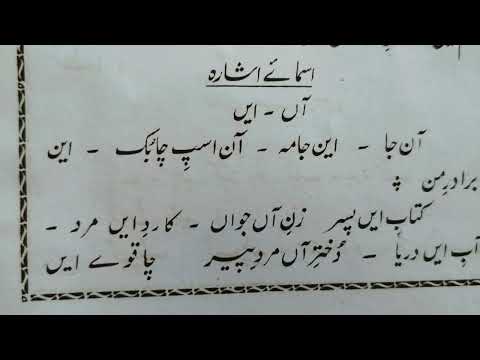 اسمائے اشارہ
آں - ایں
آن جا - این جامہ - آن اسپِ چابُک - این
برادرِ من
کتابِ ایں پسر زنِ آں جواں - کاردِ ایں مرد -
آبِ ایں دریا - دُخترِ آں مردِ پیر چاقوے ایں